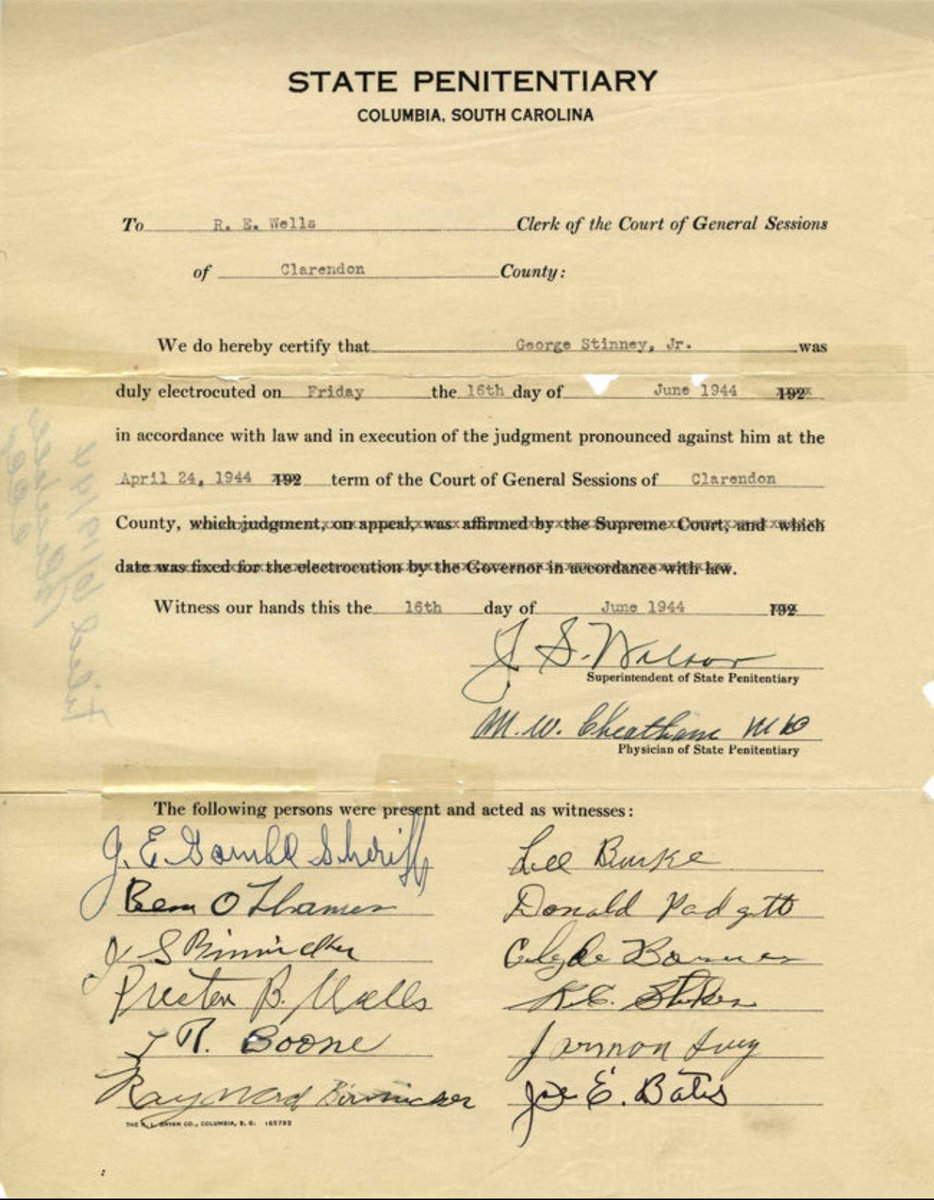 STATE PENITENTIARY
COLUMBIA, SOUTH CAROLINA
To R. E. Wells Clerk of the Court of General Sessions
of Clarendon County:
We do hereby certify that George Stinney, Jr. was
duly electrocuted on Friday the 16th day of June 1944 192
in accordance with law and in execution of the judgment pronounced against him at the
April 24, 1944 192 term of the Court of General Sessions of Clarendon
County, which judgment, on appeal, was affirmed by the Supreme Court, and which
date was fixed for the electrocution by the Governor in accordance with law.
Witness our hands this the 16th day of June 1944 192
J. S. Wilson
Superintendent of State Penitentiary
M. W. Cheatham MD
Physician of State Penitentiary
The following persons were present and acted as witnesses:
J. E. Gamble Sheriff Lee Burke
Ben O Thames Donald Padgett
J S Clyde
Preston B. Wells
T R. Boone
Raymond Joe E. Bates
BRYAN CO., COLUMBIA, S. C.